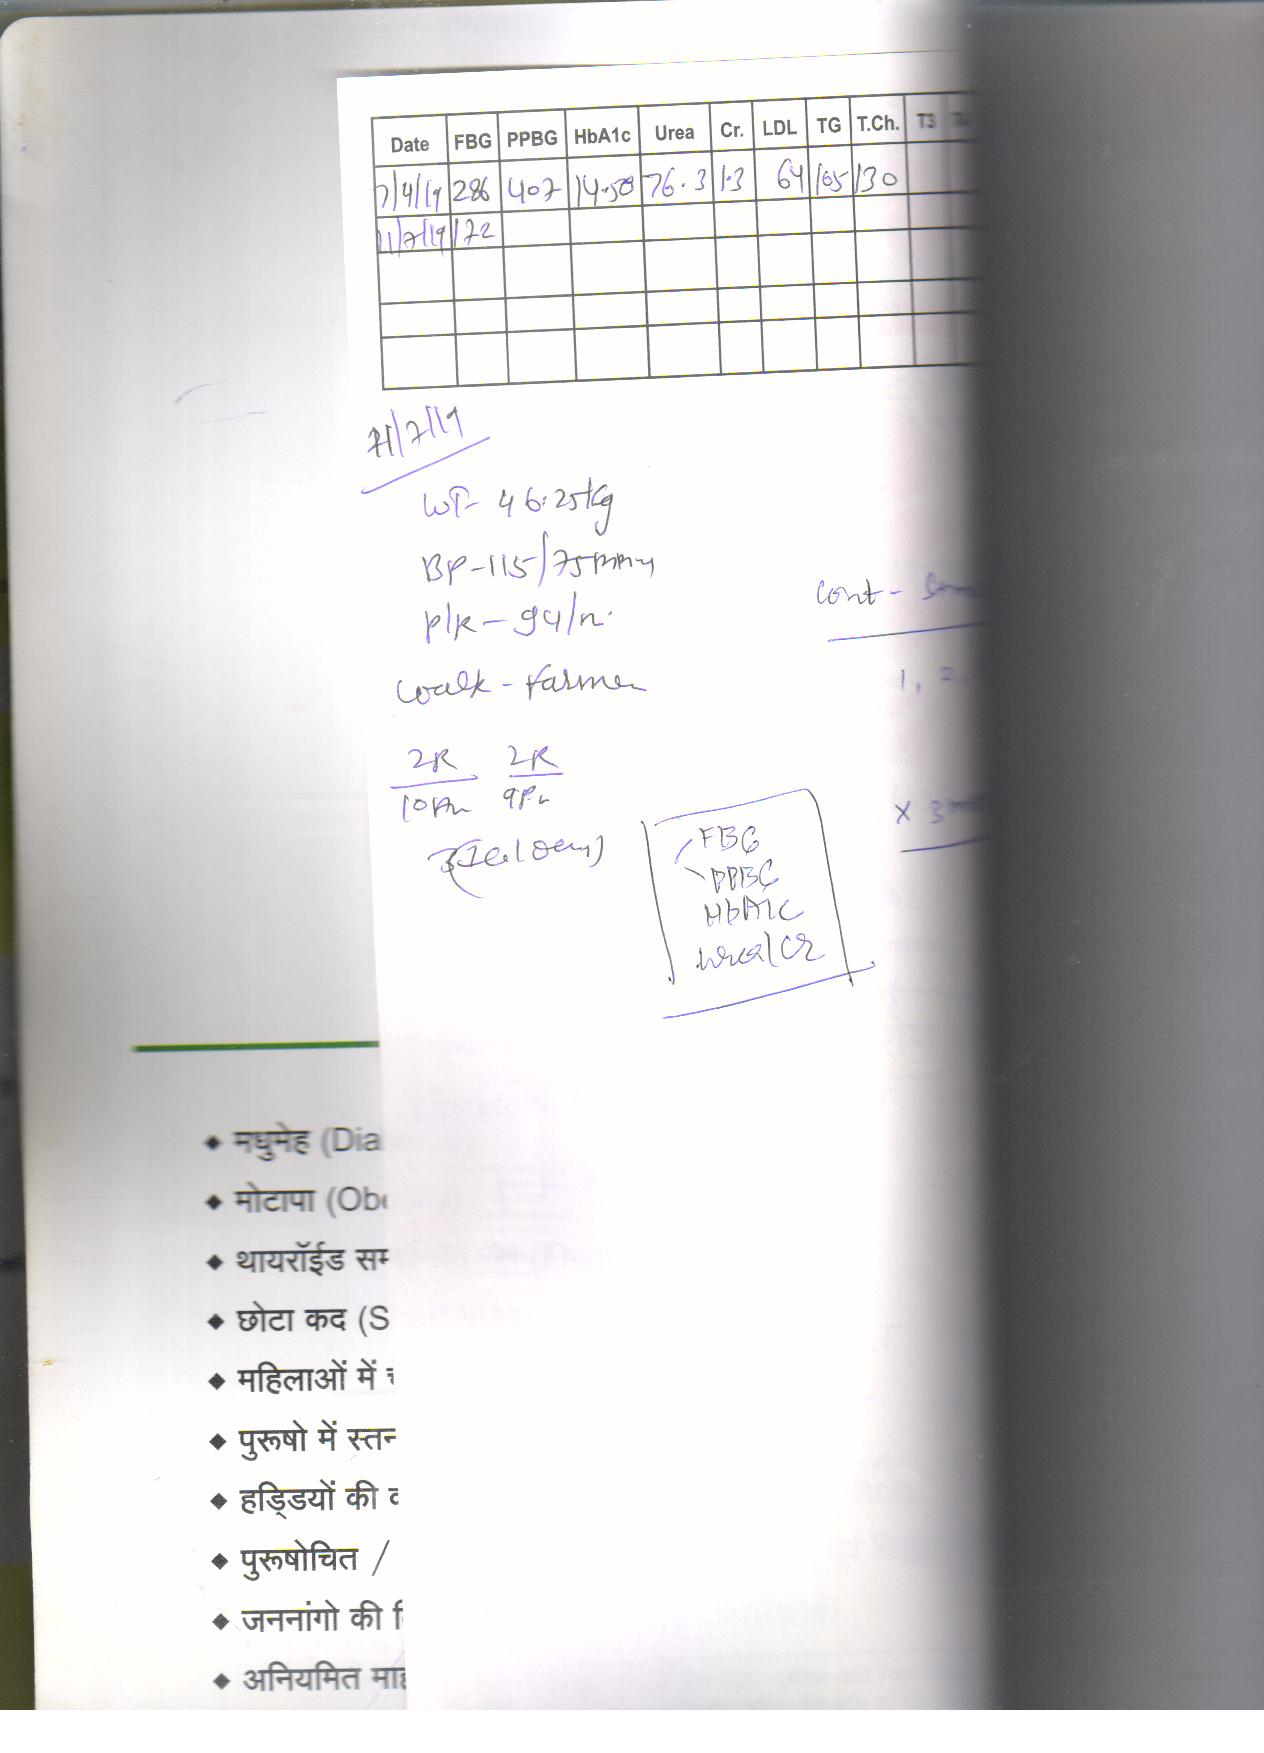 Date FBG PPBG HbA1c Urea Cr. LDL TG T.Ch. T3
7/4/19 286 407 14.50 76.3 1.3 64 165 130
11/7/19 172
11/7/19
WT- 46.25 Kg
BP-115/75mmHg
P/R - 94/m.
cont -
walk - farmer
1,
2R 2R
10Am 9Pm
x 3
FBG
PPBG
HbA1C
Urea/Cr
◆ मधुमेह (Dia
◆ मोटापा (Obe
◆ थायरॉईड सम
◆ छोटा कद (S
◆ महिलाओं में
◆ पुरूषो में स्तन
◆ हड्डियों की
◆ पुरूषोचित /
◆ जननांगो की
◆ अनियमित माह